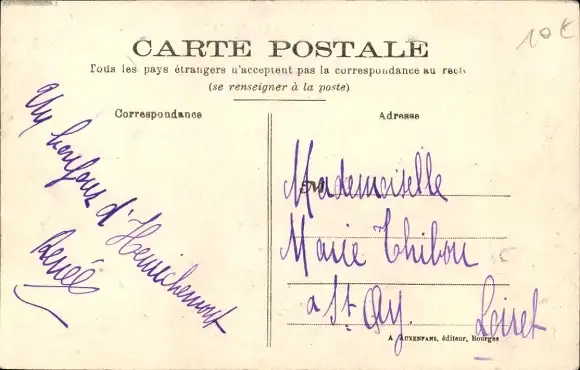 10€
CARTE POSTALE
Tous les pays étrangers n'acceptent pas la correspondance au recto
(se renseigner à la poste)
Correspondance
Adresse
Un bonjour
d'Henrichemont
Renée
Mademoiselle
Marie Thibou
à St. Ay.
Loiret
A AUXENFANS, éditeur, Bourges